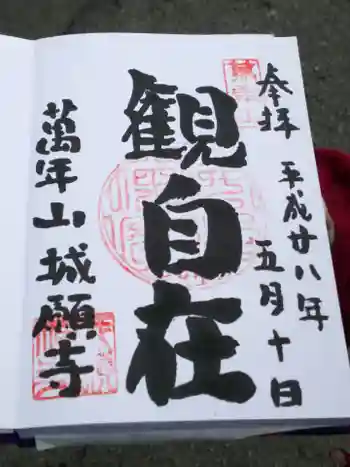 奉拝
平成廿八年
五月十日
觀自在
萬年山城願寺